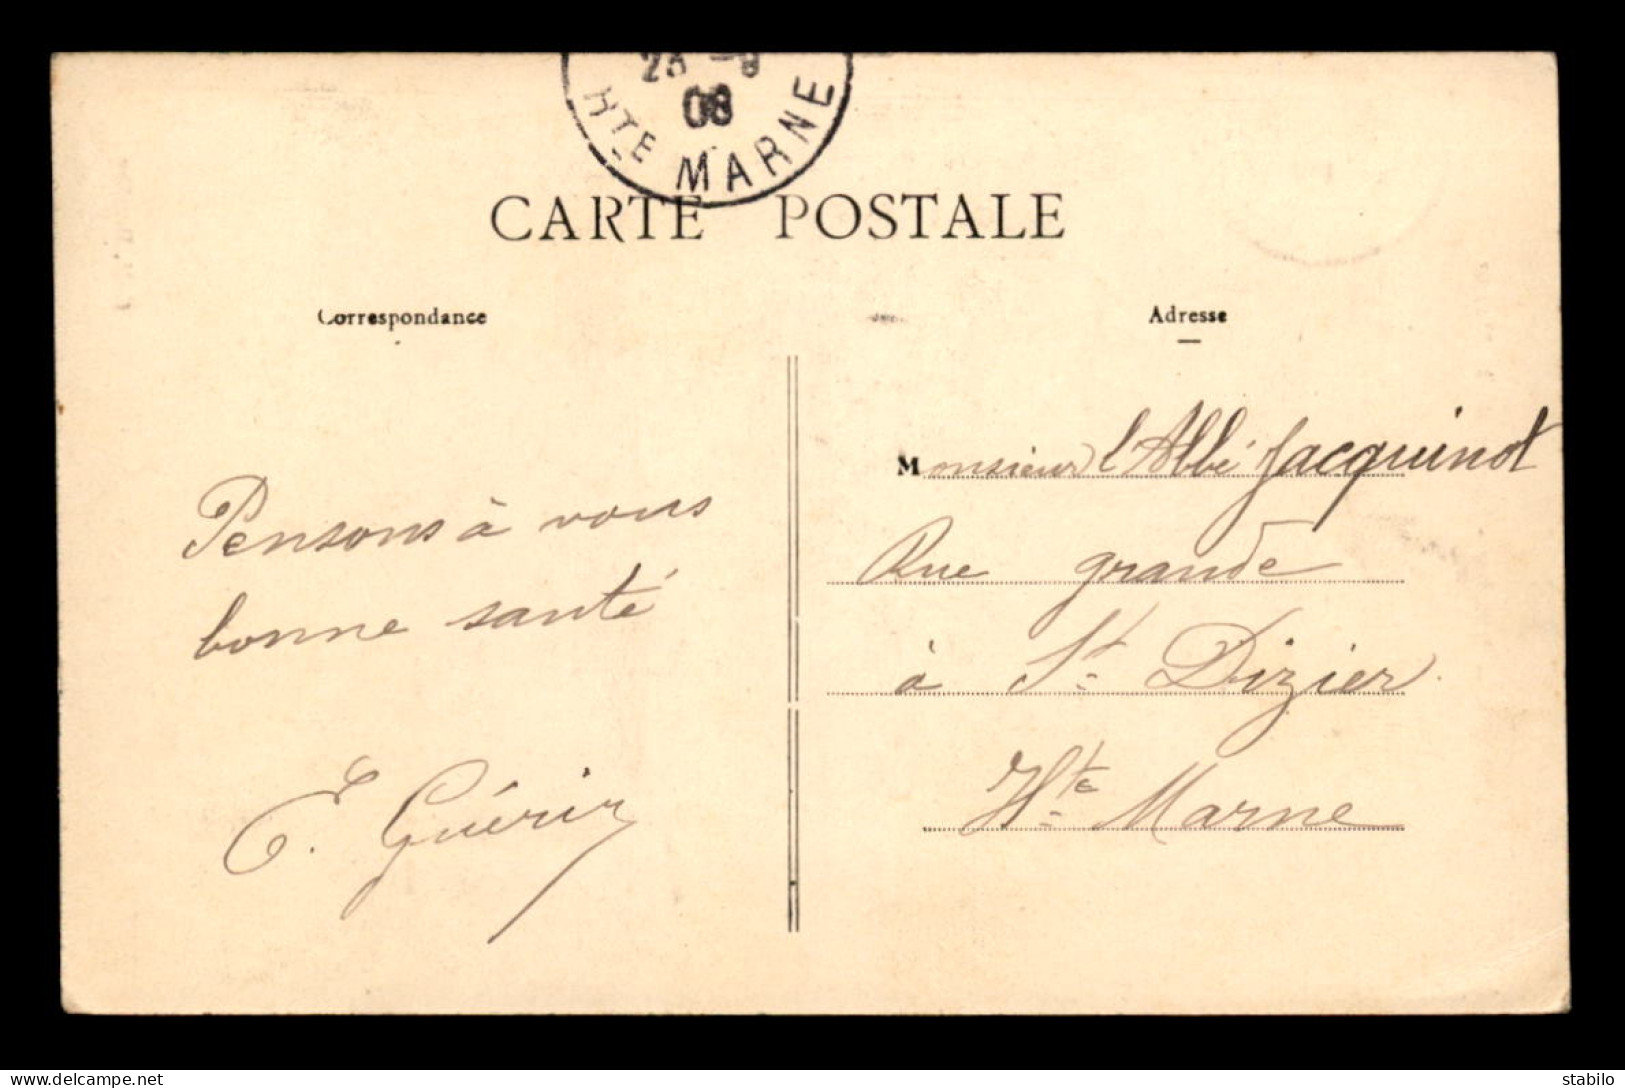 -9
08
HTE MARNE
CARTE POSTALE
Correspondance
Adresse
Pensons à vous
bonne santé
E. Guérin
Monsieur l'Abbé Jacquinot
Rue grande
à St Dizier
Hte Marne
delcampe.net
stabilo